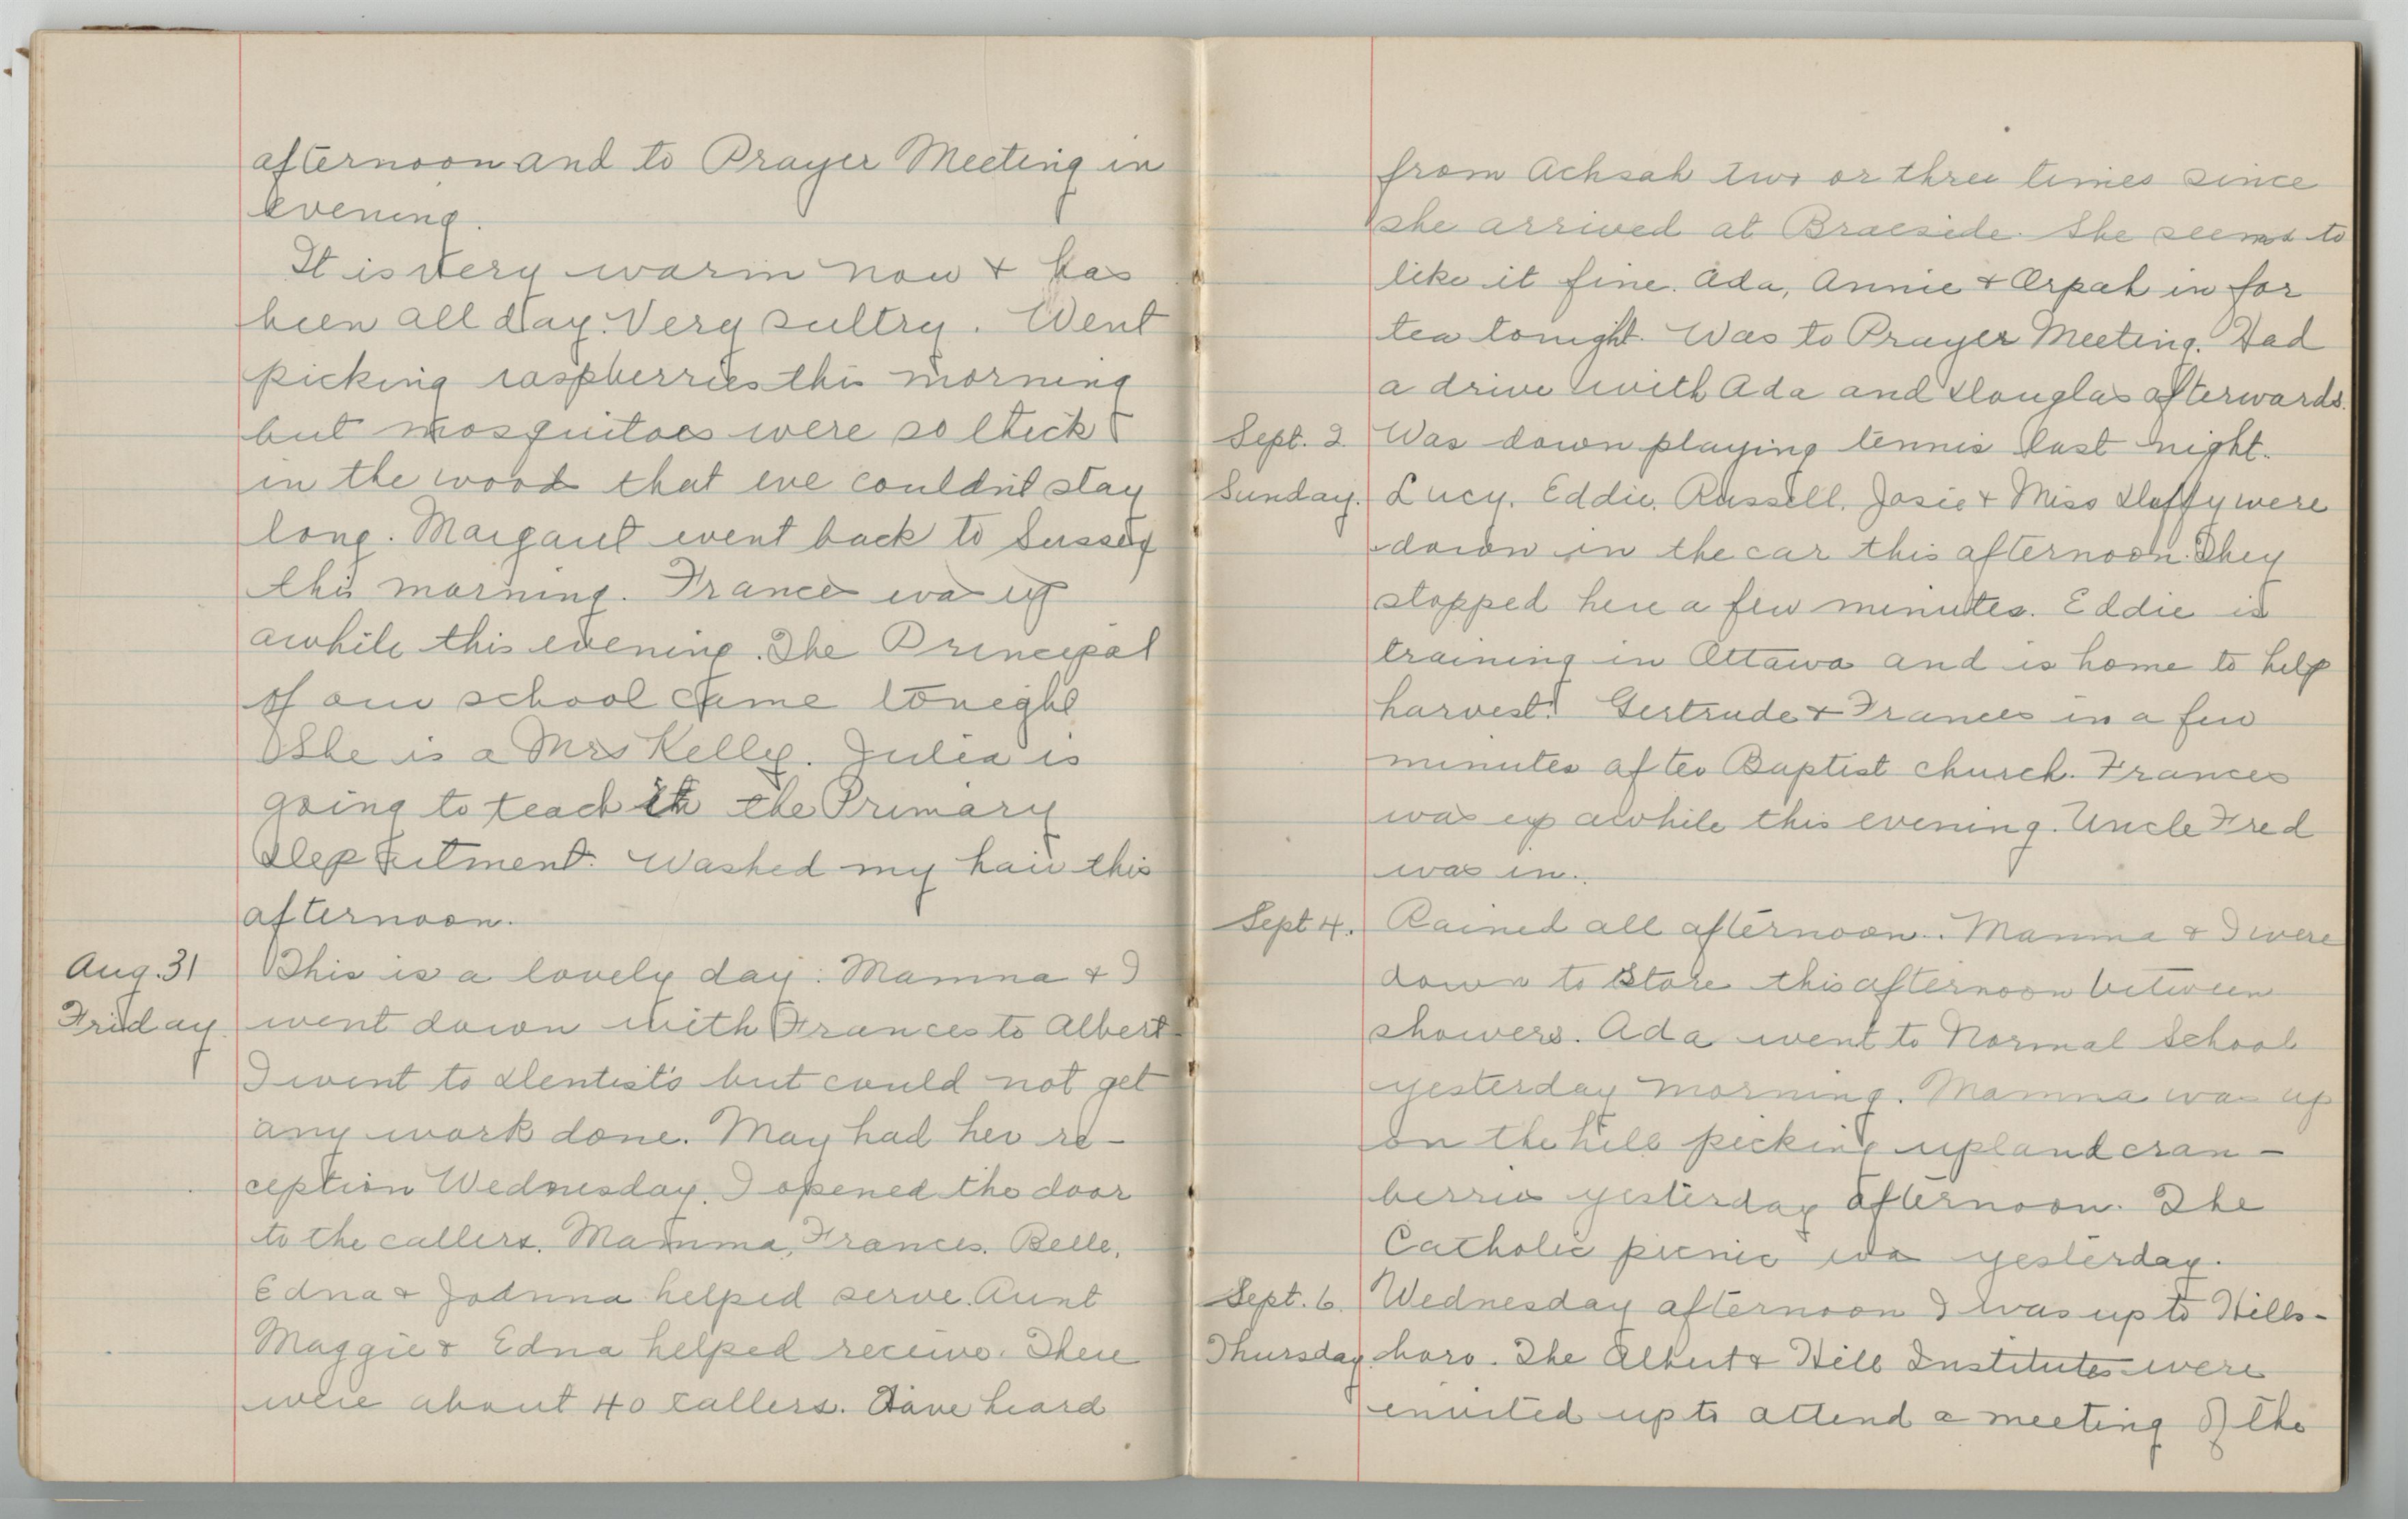 afternoon and to Prayer Meeting in
evening.
It is very warm now & has
been all day. Very sultry. Went
picking raspberries this morning
but mosquitoes were so thick
in the woods that we couldn't stay
long. Margaret went back to Sussex
this morning. Frances was up
awhile this evening. The Principal
of our school came tonight
She is a Mrs Kelly. Julia is
going to teach in the Primary
Department. Washed my hair this
afternoon.
Aug. 31 This is a lovely day. Mamma & I
Friday went down with Frances to Albert
I went to Dentist's but could not get
any work done. May had her re-
ception Wednesday. I opened the door
to the callers. Mamma, Frances, Belle,
Edna & Joanna helped serve. Aunt
Maggie & Edna helped receive. There
were about 40 callers. Have heard
from Achsah two or three times since
she arrived at Braeside. She seems to
like it fine. Ada, Annie & Orpah in for
tea tonight. Was to Prayer Meeting. Had
a drive with Ada and Douglas afterwards.
Sept. 2. Was down playing tennis last night.
Sunday. Lucy, Eddie, Russell, Josie & Miss Duffy were
down in the car this afternoon. They
stopped here a few minutes. Eddie is
training in Ottawa and is home to help
harvest. Gertrude & Frances in a few
minutes after Baptist church. Frances
was up awhile this evening. Uncle Fred
was in.
Sept 4. Rained all afternoon. Mamma & I were
down to Store this afternoon between
showers. Ada went to Normal School
yesterday morning. Mamma was up
on the hill picking upland cran-
berries yesterday afternoon. The
Catholic picnic was yesterday.
Sept. 6. Wednesday afternoon I was up to Hills-
Thursday. boro. The Albert & Hill Institutes were
invited up to attend a meeting of the